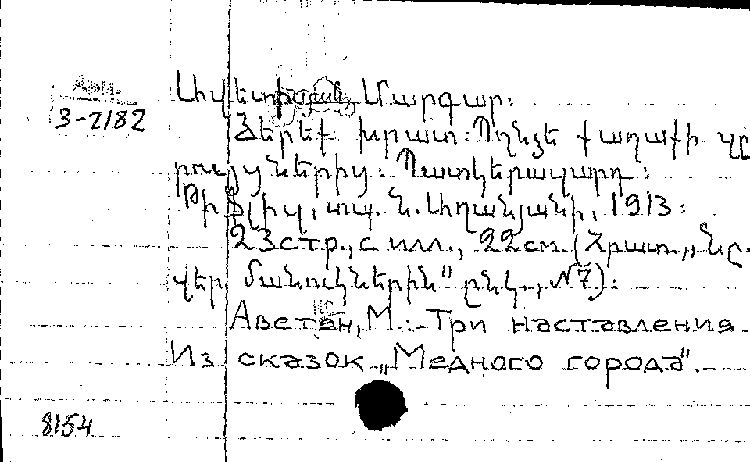 Арм.
3-2182
Ավետիսյան Մարգար.
Երեք խրատ: Պղնձե քաղաքի զը-
րույցներից: Պատկերազարդ:
Թիֆլիս, տպ. Ն. Աղանյանի, 1913:
23 стр., с илл., 22 см. (Հրատ. „Նը-
վեր մանուկներին" ընկ., №7):
Аветян, М. - Три наставления.
Из сказок „Медного города". -
8154